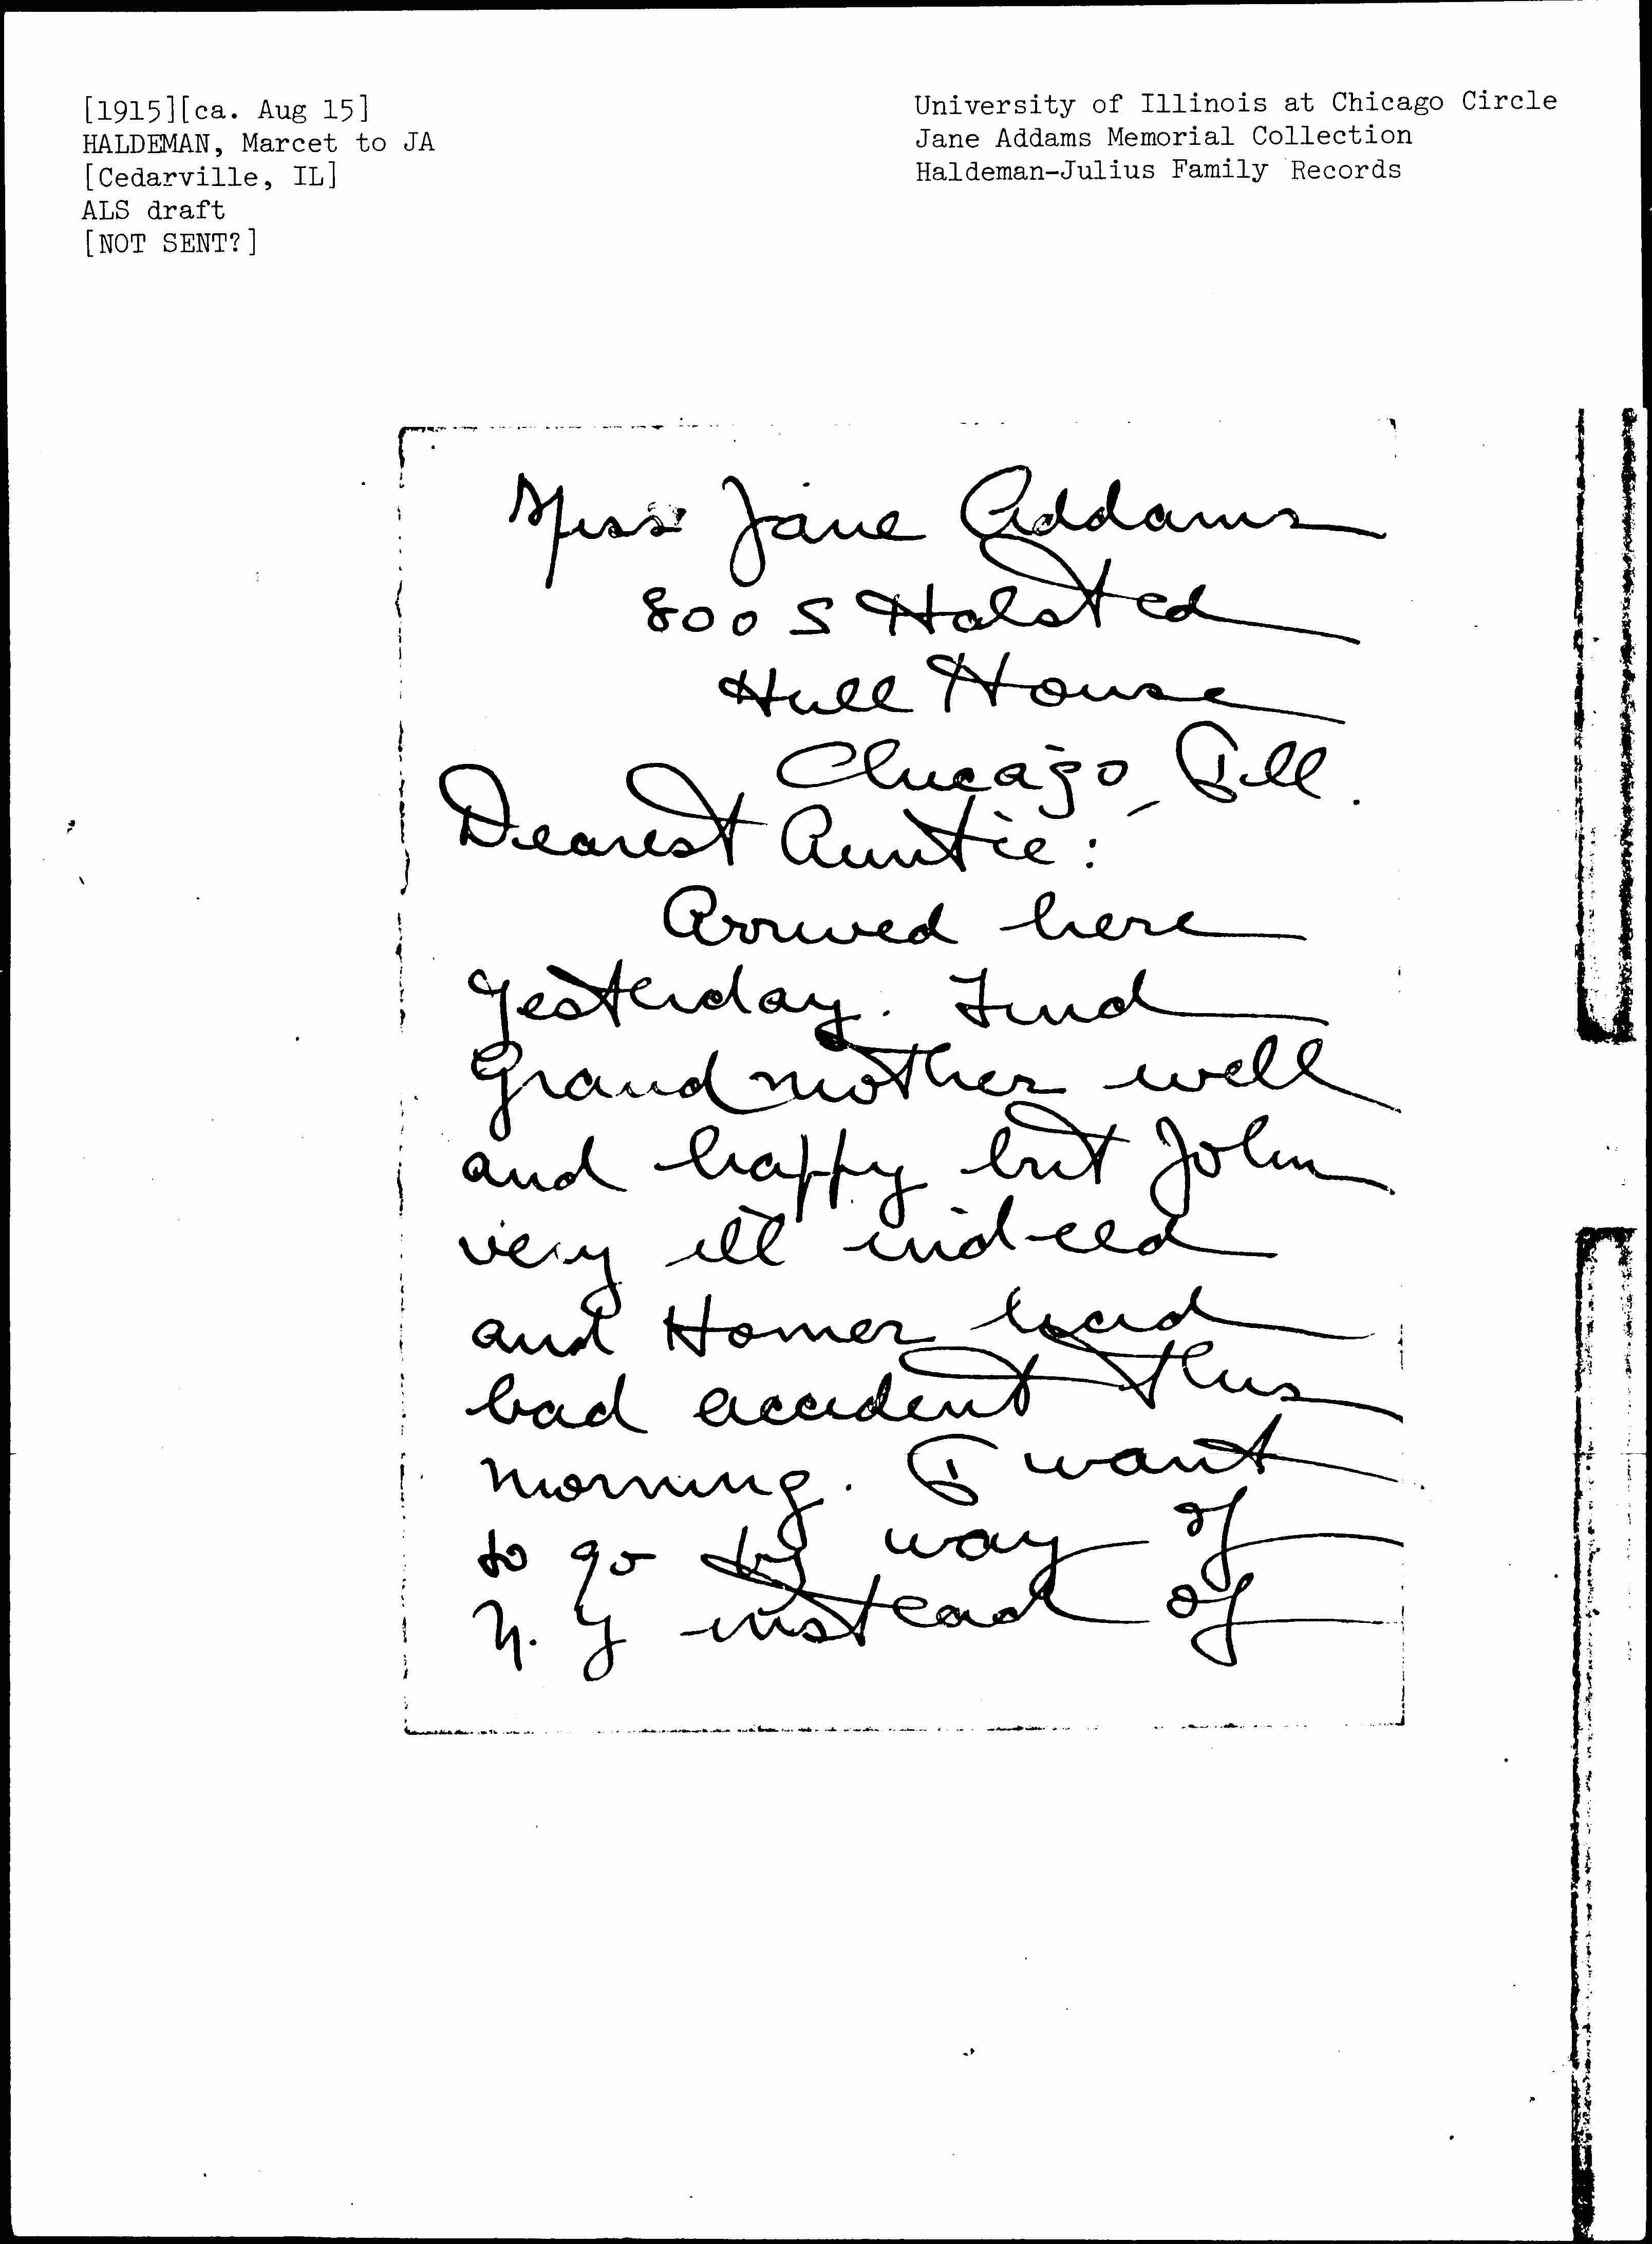 [1915][ca. Aug 15]
HALDEMAN, Marcet to JA
[Cedarville, IL]
ALS draft
[NOT SENT?]
University of Illinois at Chicago Circle
Jane Addams Memorial Collection
Haldeman-Julius Family Records
Miss Jane Addams
800 S Halsted
Hull House
Chicago, Ill.
Dearest Auntie:
Arrived here
yesterday. Find
Grandmother well
and happy but John
very ill indeed
and Homer had
bad accident this
morning. I want
to go by way of
N. Y instead of